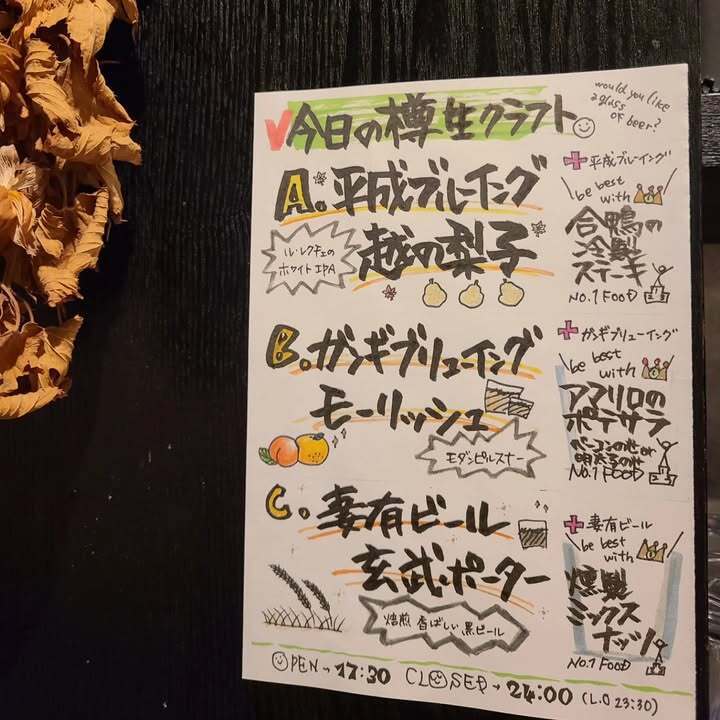 今日の樽生クラフト
would you like
a glass
of beer?
A. 平成ブルーイング
越の梨子
ル・レクチェの
ホワイトIPA
+平成ブルーイング
be best
with
合鴨の
冷製
ステーキ
NO.1 FOOD
B. ガンギブリューイング
モーリッシュ
モダンピルスナー
+ガンギブリューイング
be best
with
アマリロの
ポテサラ
ベーコンのせor
明太子のせ
NO.1 FOOD
C. 妻有ビール
玄武・ポーター
焙煎 香ばしい 黒ビール
+妻有ビール
be best
with
燻製
ミックス
ナッツ
NO.1 FOOD
OPEN→17:30 CLOSED→24:00 (L.O 23:30)